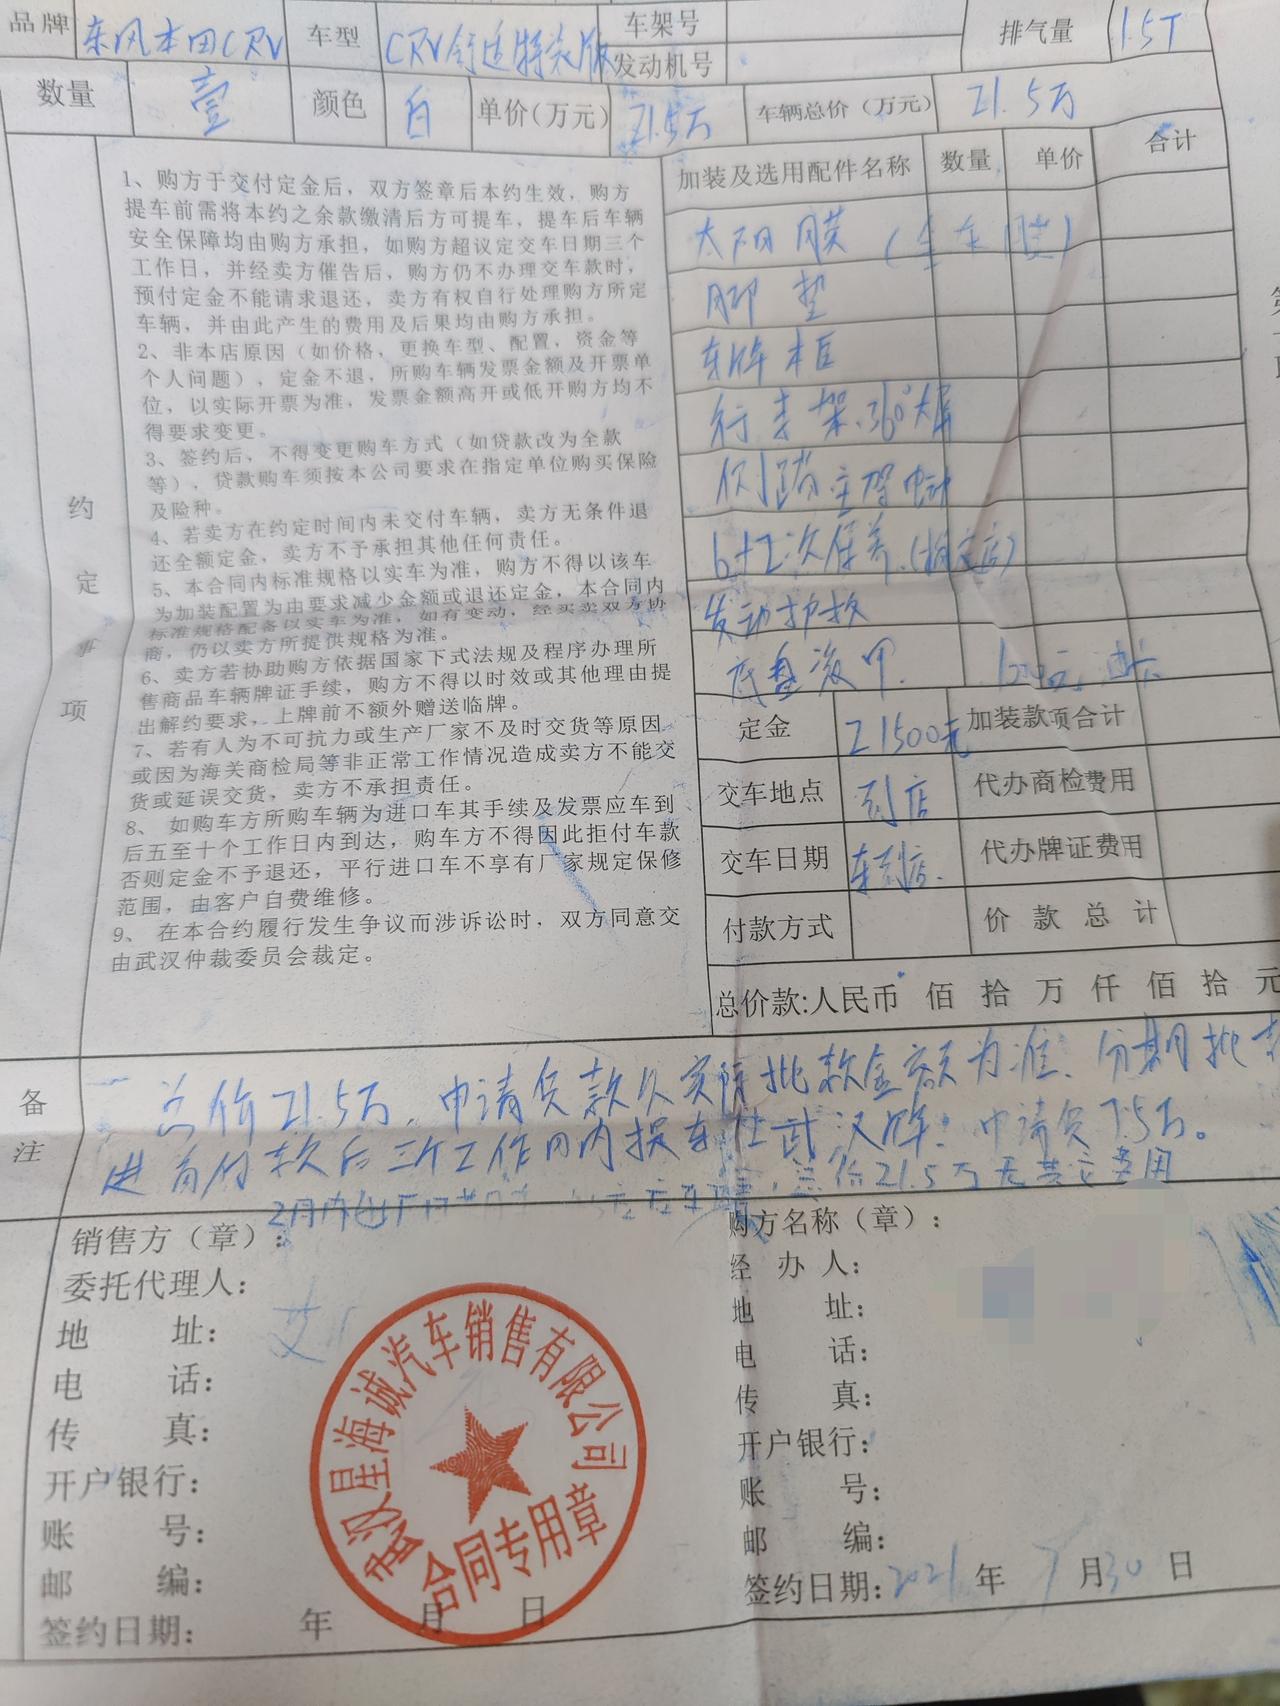 品牌 东风本田CRV 车型 CRV舒适特装版 车架号 发动机号 排气量 1.5T
数量 壹 颜色 白 单价(万元) 21.5万 车辆总价（万元） 21.5万
约定事项
1、购方于交付定金后，双方签章后本约生效，购方
提车前需将本约之余款缴清后方可提车，提车后车辆
安全保障均由购方承担，如购方超议定交车日期三个
工作日，并经卖方催告后，购方仍不办理交车款时，
预付定金不能请求退还，卖方有权自行处理购方所定
车辆，并由此产生的费用及后果均由购方承担。
2、非本店原因（如价格，更换车型、配置，资金等
个人问题），定金不退，所购车辆发票金额及开票单
位，以实际开票为准，发票金额高开或低开购方均不
得要求变更。
3、签约后，不得变更购车方式（如贷款改为全款
等），贷款购车须按本公司要求在指定单位购买保险
及险种。
4、若卖方在约定时间内未交付车辆，卖方无条件退
还全额定金，卖方不予承担其他任何责任。
5、本合同内标准规格以实车为准，购方不得以该车
为加装配置为由要求减少金额或退还定金，本合同内
标准规格配备以实车为准，如有变动，经买卖双方协
商，仍以卖方所提供规格为准。
6、卖方若协助购方依据国家下式法规及程序办理所
售商品车辆牌证手续，购方不得以时效或其他理由提
出解约要求，上牌前不额外赠送临牌。
7、若有人为不可抗力或生产厂家不及时交货等原因
或因为海关商检局等非正常工作情况造成卖方不能交
货或延误交货，卖方不承担责任。
8、如购车方所购车辆为进口车其手续及发票应车到
后五至十个工作日内到达，购车方不得因此拒付车款
否则定金不予退还，平行进口车不享有厂家规定保修
范围，由客户自费维修。
9、在本合约履行发生争议而涉诉讼时，双方同意交
由武汉仲裁委员会裁定。
加装及选用配件名称 数量 单价 合计
太阳膜（全车膜）
脚垫
车牌框
行李架、360°大屏
侧踏 支架电动
6+2次保养（指定店）
发动护板
底盘装甲 1200元油卡
定金 21500元 加装款项合计
交车地点 到店 代办商检费用
交车日期 车到店 代办牌证费用
付款方式 价款总计
总价款:人民币 佰 拾 万 仟 佰 拾 元
备注
总价21.5万，申请贷款以实际批款金额为准、分期批
进首付款后三个工作日内提车上武汉牌！申请贷7.5万。
2月内 总价21.5万无其它费用
销售方（章）：
委托代理人：
地 址：
电 话：
传 真：
开户银行：
账 号：
邮 编：
签约日期： 年 月 日
武汉星海诚汽车销售有限公司
合同专用章
购方名称（章）：
经 办 人：
地 址：
电 话：
传 真：
开户银行：
账 号：
邮 编：
签约日期:2021年7月30日